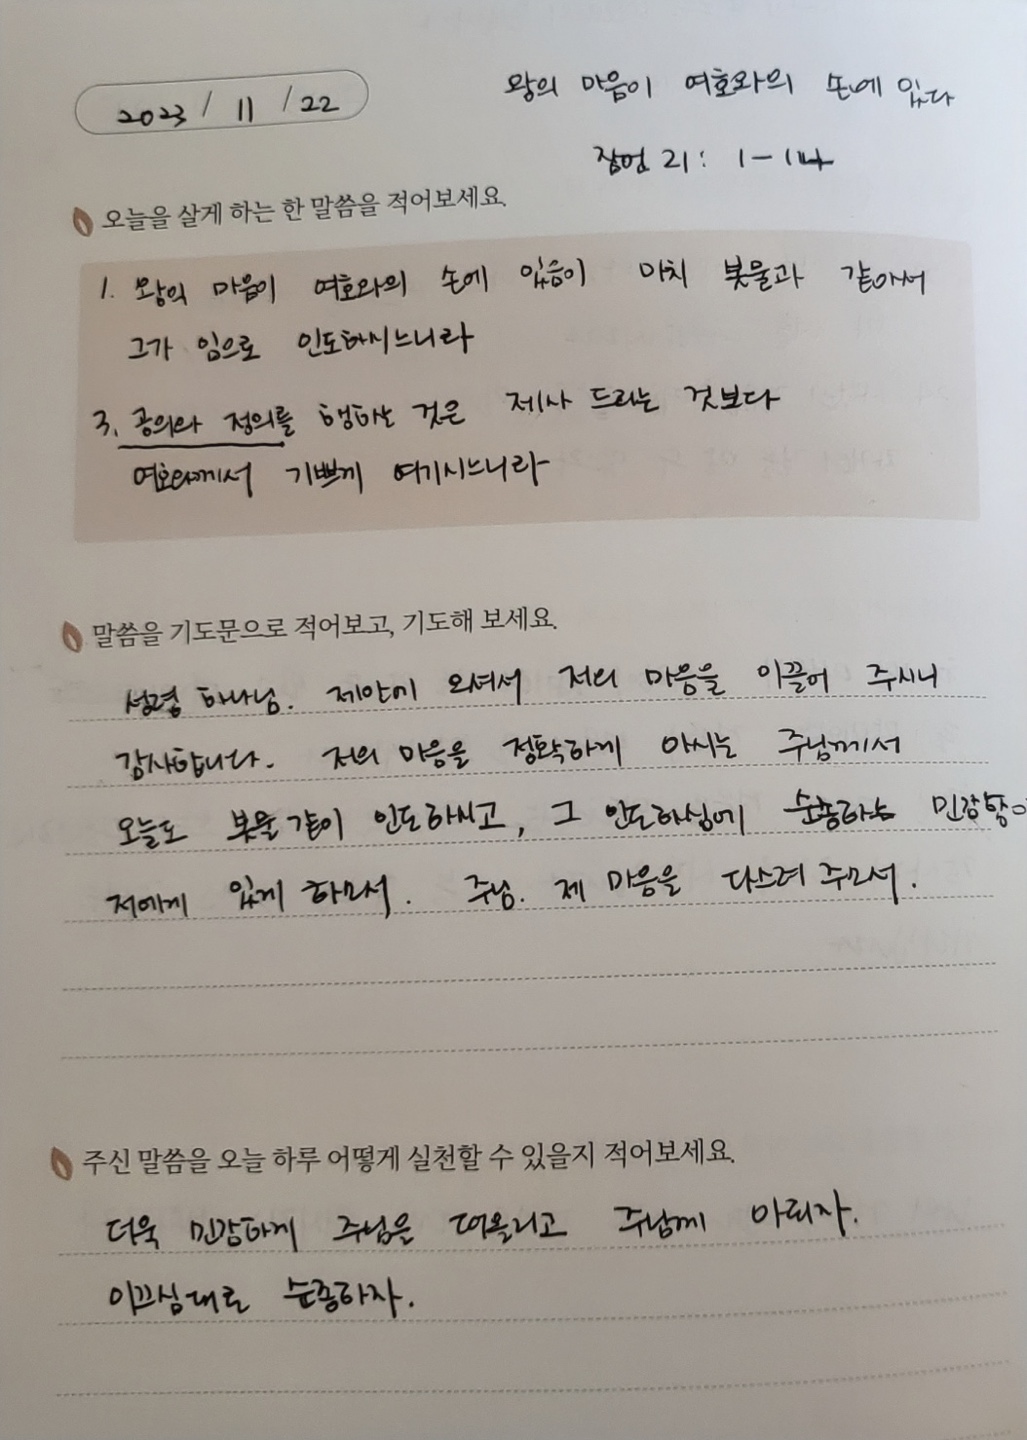 2023 / 11 / 22
왕의 마음이 여호와의 손에 있다
잠언 21: 1-14
오늘을 살게 하는 한 말씀을 적어보세요.
1. 왕의 마음이 여호와의 손에 있음이 마치 봇물과 같아서
그가 임으로 인도하시느니라
3. 공의와 정의를 행하는 것은 제사 드리는 것보다
여호와께서 기쁘게 여기시느니라
말씀을 기도문으로 적어보고, 기도해 보세요.
성령 하나님. 제안에 오셔서 저의 마음을 이끌어 주시니
감사합니다. 저의 마음을 정확하게 아시는 주님께서
오늘도 봇물 같이 인도하시고, 그 인도하심에 순종하는
저에게 있게 하소서. 주님. 제 마음을 다스려 주소서.
주신 말씀을 오늘 하루 어떻게 실천할 수 있을지 적어보세요.
더욱 민감하게 주님을 떠올리고 주님께 아뢰자.
이끄심대로 순종하자.